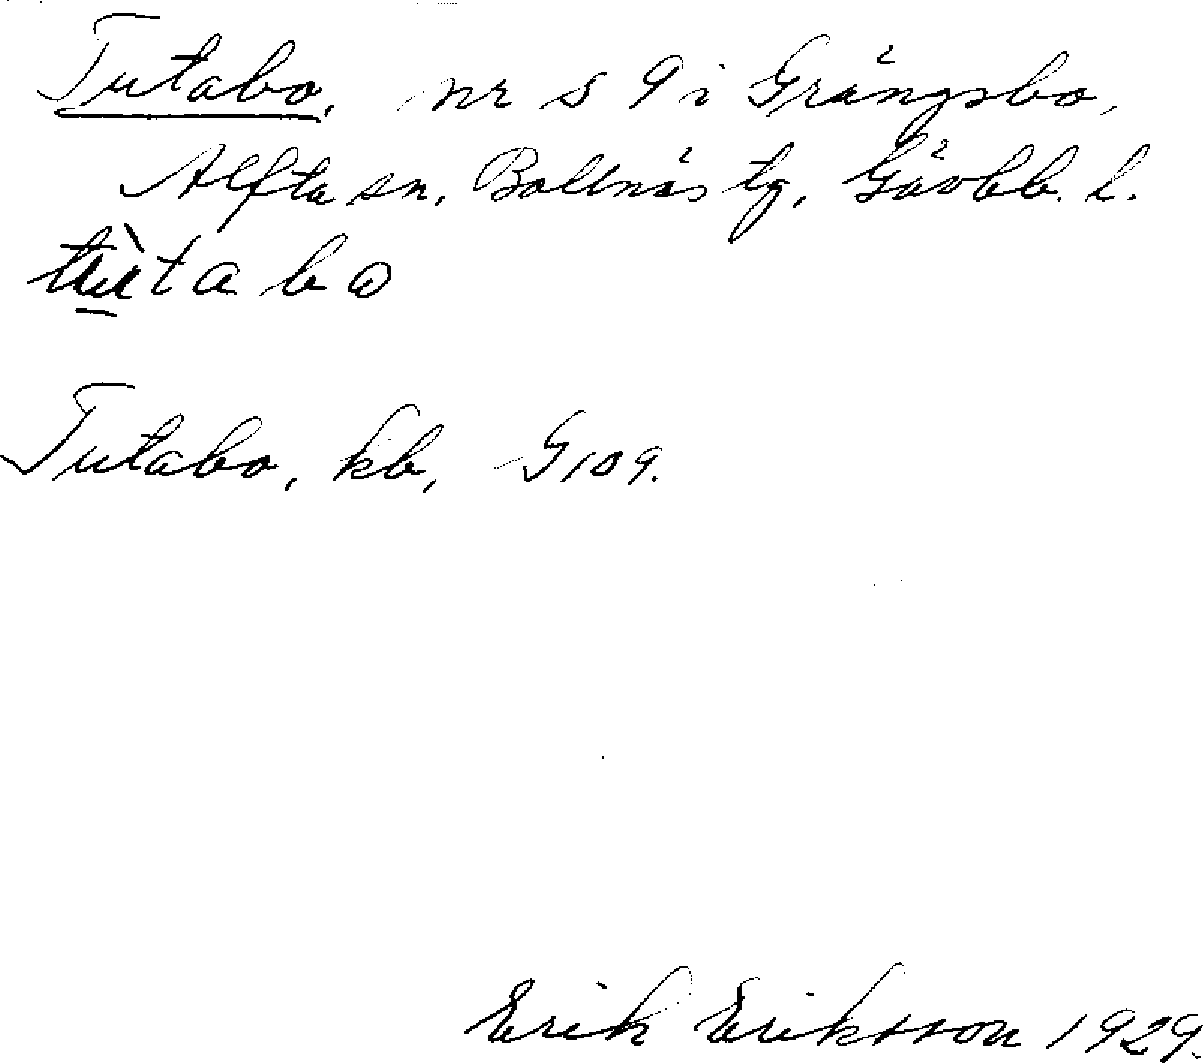 Tutabo, nr s 9 i Grängsbo,
Alfta sn, Bollnäs tg, Gävbb. l.
tùtabo
Tutabo, kb, G109.
Erik Eriksson 1929.